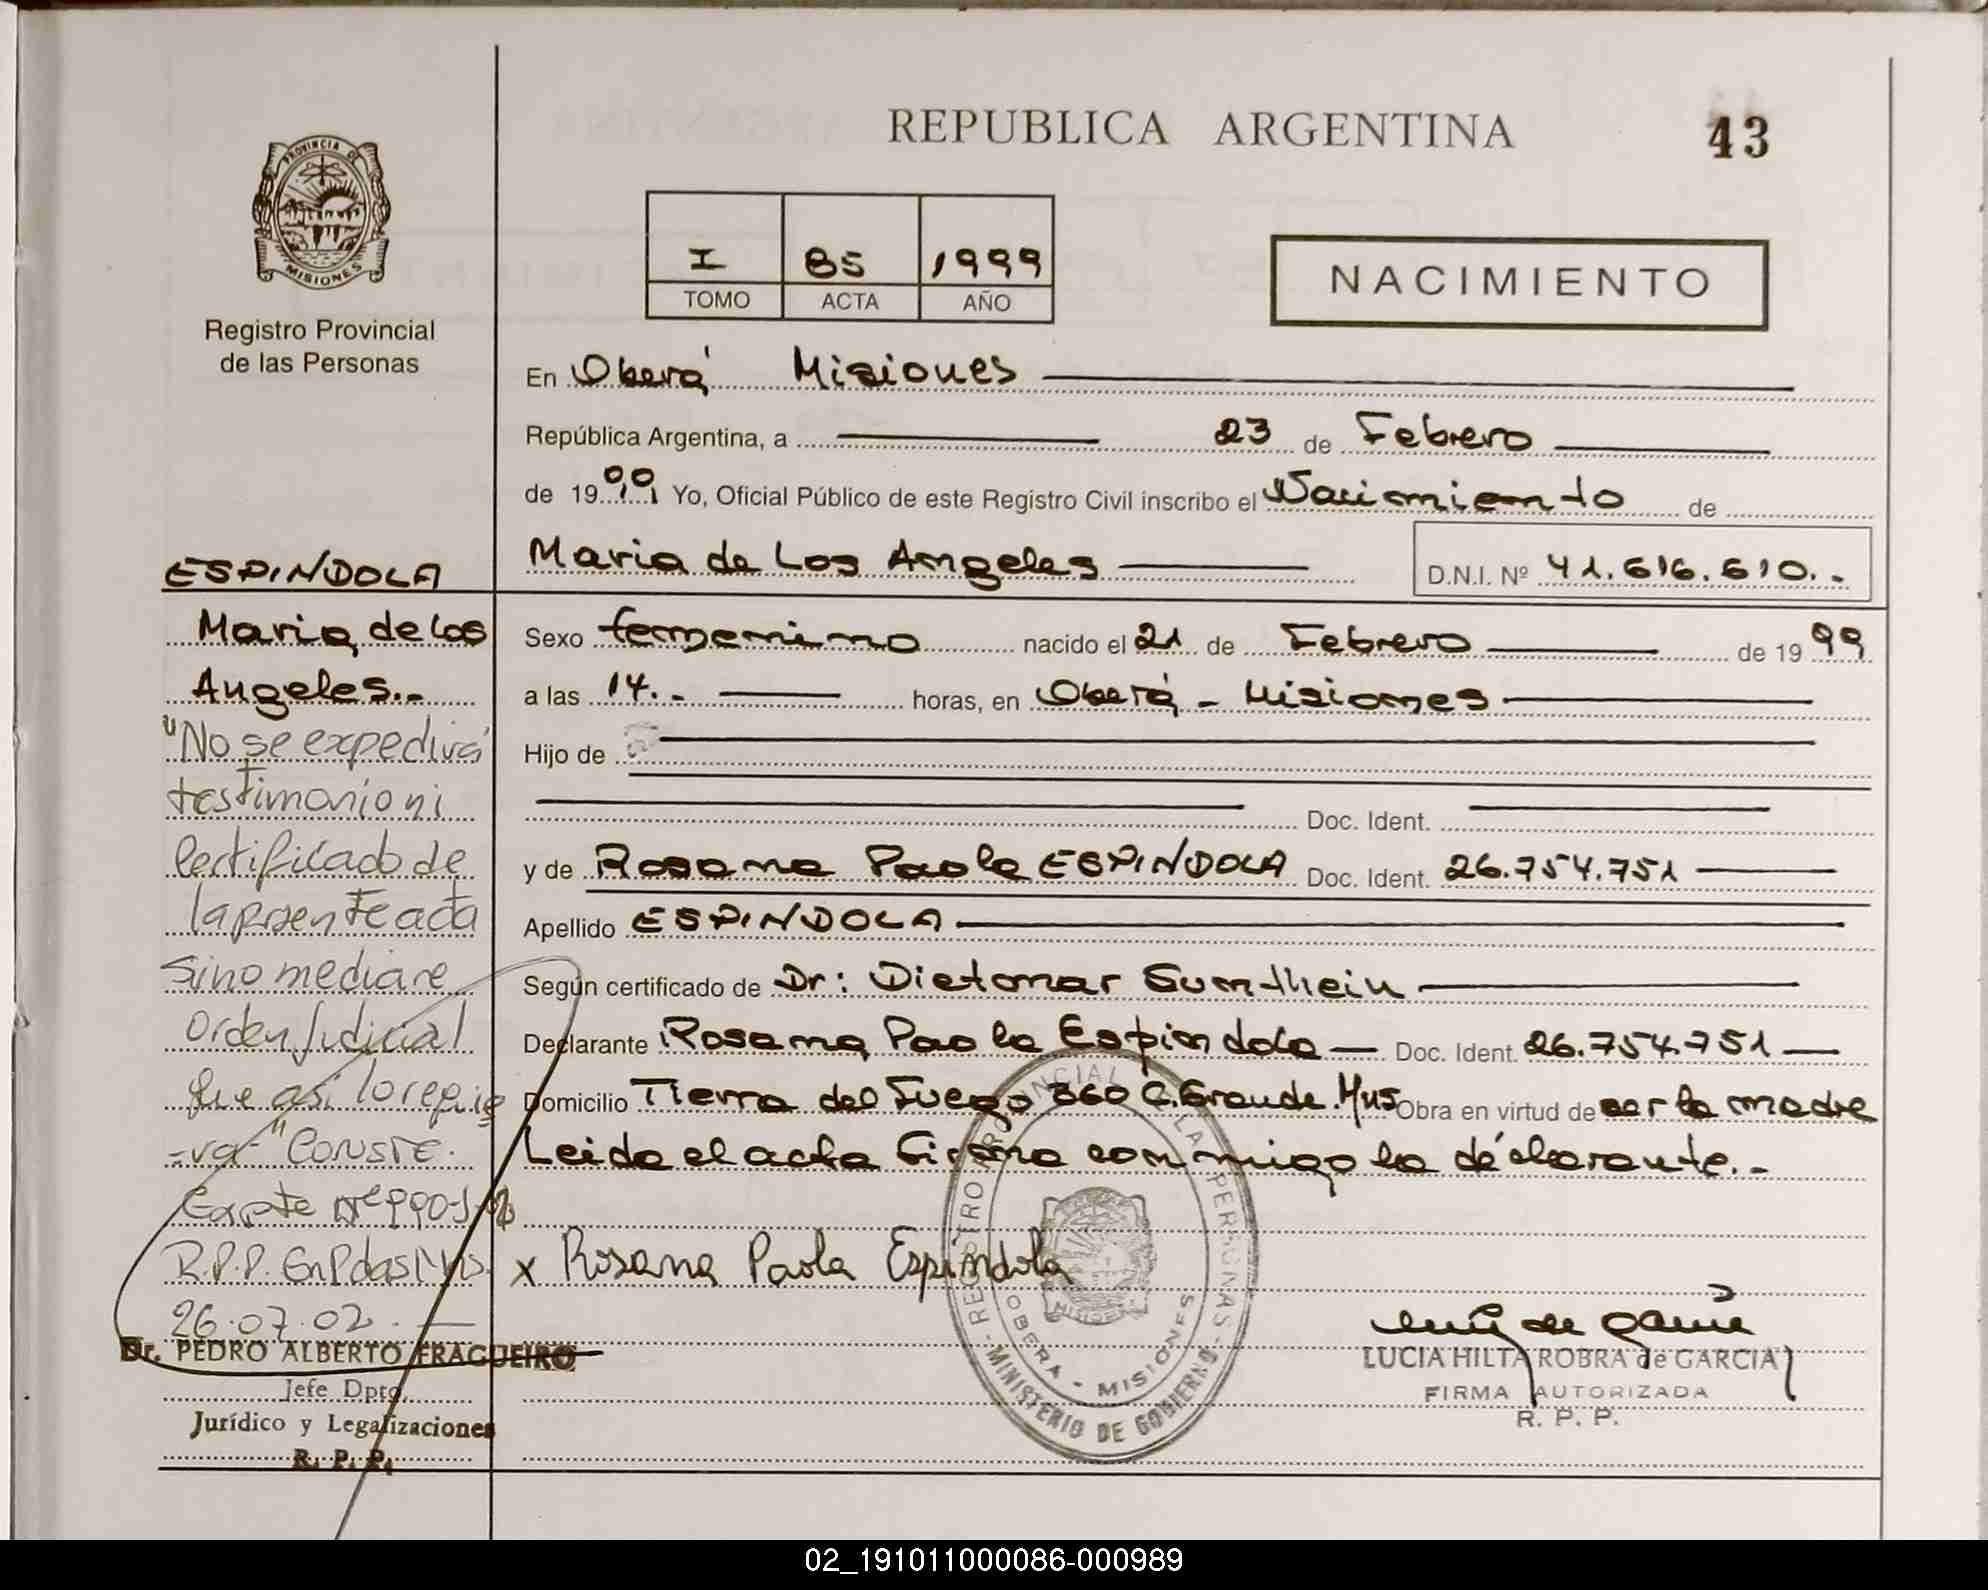 REPUBLICA ARGENTINA
43
PROVINCIA DE
MISIONES
Registro Provincial
de las Personas
I 85 1999
TOMO ACTA AÑO
NACIMIENTO
En Oberá Misiones
República Argentina, a 23 de Febrero
de 1999 Yo, Oficial Público de este Registro Civil inscribo el Nacimiento de
Maria de Los Angeles
D.N.I. Nº 41.616.610.-
Sexo femenino nacido el 21 de Febrero de 1999
a las 14.- horas, en Oberá - Misiones
Hijo de
Doc. Ident.
y de Rosana Paola ESPINDOLA Doc. Ident. 26.754.751
Apellido ESPINDOLA
Según certificado de Dr: Dietmar Sunthein
Declarante Rosana Paola Espindola Doc. Ident. 26.754.751
Domicilio Tierra del Fuego 360 C. Grande. Mns Obra en virtud de ser la madre
Leida el acta firma conmigo la declarante.-
x Rosana Paola Espíndola
REGISTRO PROVINCIAL LAS PERSONAS
OBERA - MISIONES
MINISTERIO DE GOBIERNO
LUCIA HILTA ROBRA de GARCIA
FIRMA AUTORIZADA
R. P. P.
ESPINDOLA
Maria de los
Angeles.-
"No se expedirá
testimonio ni
Certificado de
la presente acta
sino mediare
Orden Judicial
que así lo requie
-ra" CONSTE.
R.P.P. En Pdas Mns.
26.07.02.
Dr. PEDRO ALBERTO FRAGUEIRO
Jefe Dpto.
Jurídico y Legalizaciones
R. P. P.
02_191011000086-000989